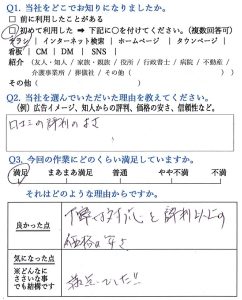 Q1. 当社をどこでお知りになりましたか。
□ 前に利用したことがある
□ 初めて利用した ➡ 下記に○を付けてください。(複数回答可)
チラシ | インターネット検索 | ホームページ | タウンページ |
看板 | CM | DM | SNS |
紹介 (友人・知人 / 家族・親族 / 役所 / 行政書士 / 病院 / 不動産 /
介護事業所 / 葬儀社 / その他( ))
その他( )
Q2. 当社を選んでいただいた理由を教えてください。
(例)広告イメージ、知人からの評判、価格の安さ、信頼性など。
口コミの評判のよさ
Q3. 今回の作業にどのくらい満足していますか。
満足 まあまあ満足 普通 やや不満 不満
それはどのような理由からですか。
良かった点
丁寧な対応と評判以上の
価格の安さ
気になった点
※どんなに
ささいな事
でも結構です
満点でした!!